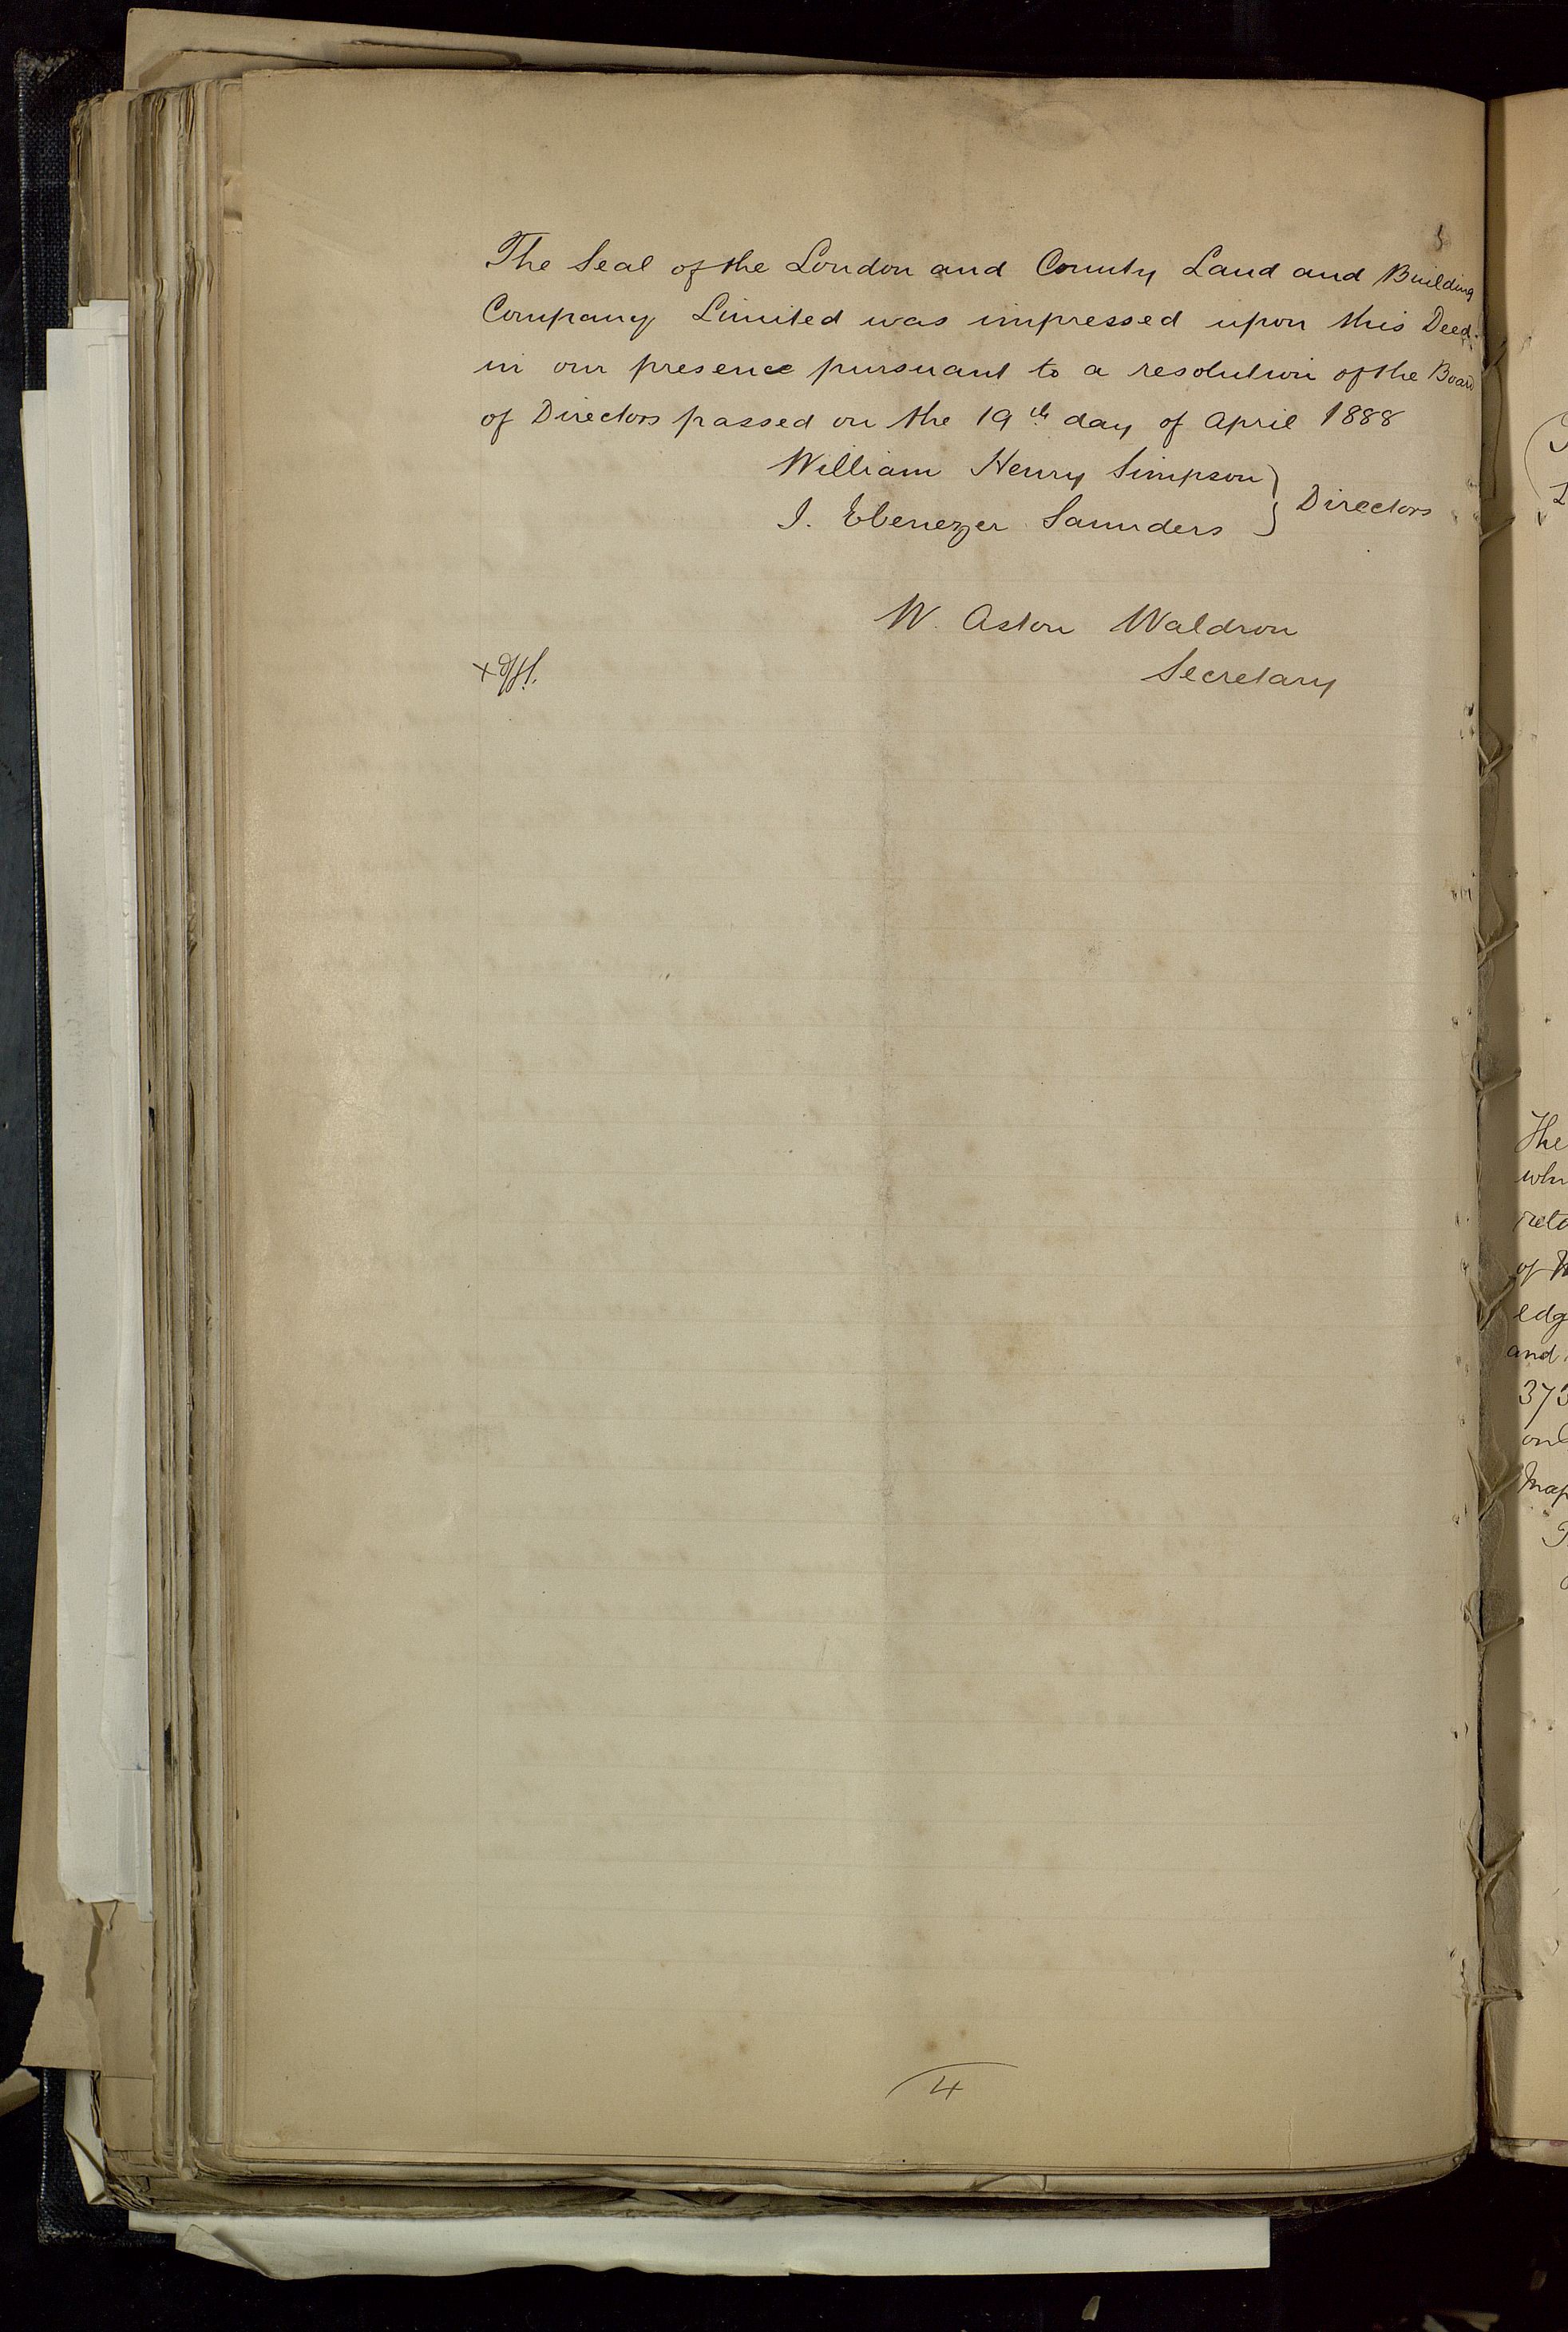 The Seal of the London and County Land and Building
Company Limited was impressed upon this Deed
in our presence pursuant to a resolution of the Board
of Directors passed on the 19th day of April 1888
William Henry Simpson
J. Ebenezer Saunders } Directors
W. Aston Waldron
Secretary
4
The
whi
reta
of
edg
and
373
onl
Map